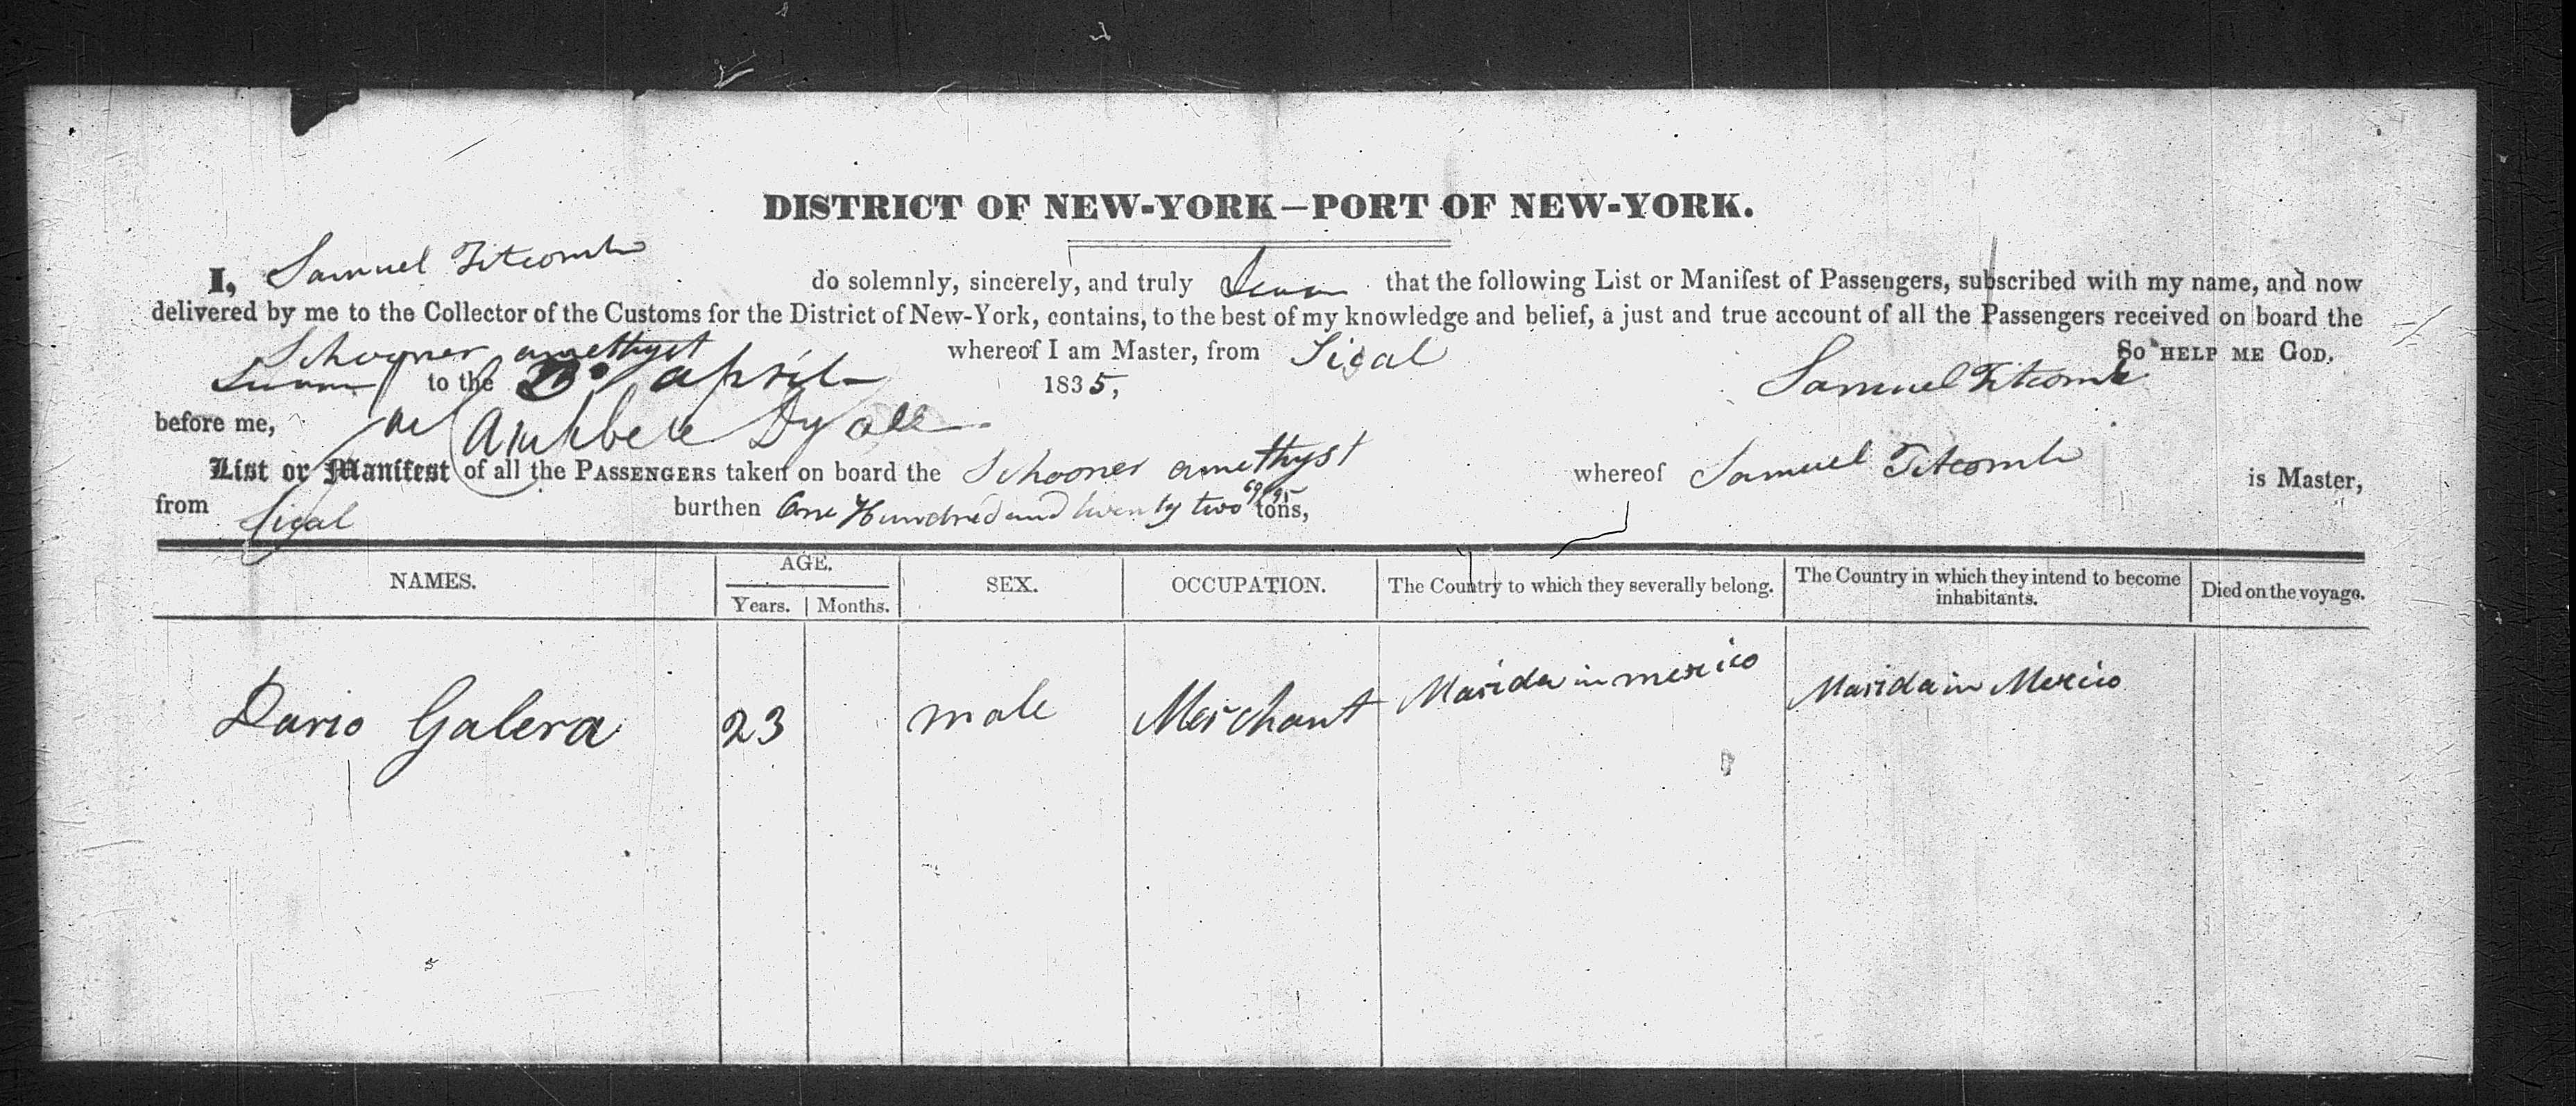 DISTRICT OF NEW-YORK—PORT OF NEW-YORK.
I, Samuel Titcomb do solemnly, sincerely, and truly Swear that the following List or Manifest of Passengers, subscribed with my name, and now
delivered by me to the Collector of the Customs for the District of New-York, contains, to the best of my knowledge and belief, a just and true account of all the Passengers received on board the
Schooner amethyst whereof I am Master, from Sisal So HELP ME GOD.
Sworn to the april 1835, Samuel Titcomb
before me,
List or Manifest of all the PASSENGERS taken on board the Schooner amethyst whereof Samuel Titcomb is Master,
from Sisal burthen One Hundred and twenty two 69/95 tons,
NAMES. AGE. SEX. OCCUPATION. The Country to which they severally belong. The Country in which they intend to become inhabitants. Died on the voyage.
Years. Months.
Dario Galera 23 male Merchant Marida in mexico Marida in Mexico